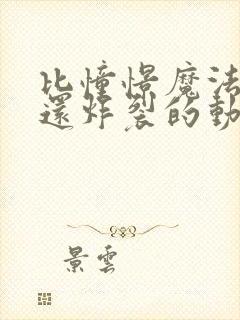 比憧憬魔法
還炸裂的動
景雲